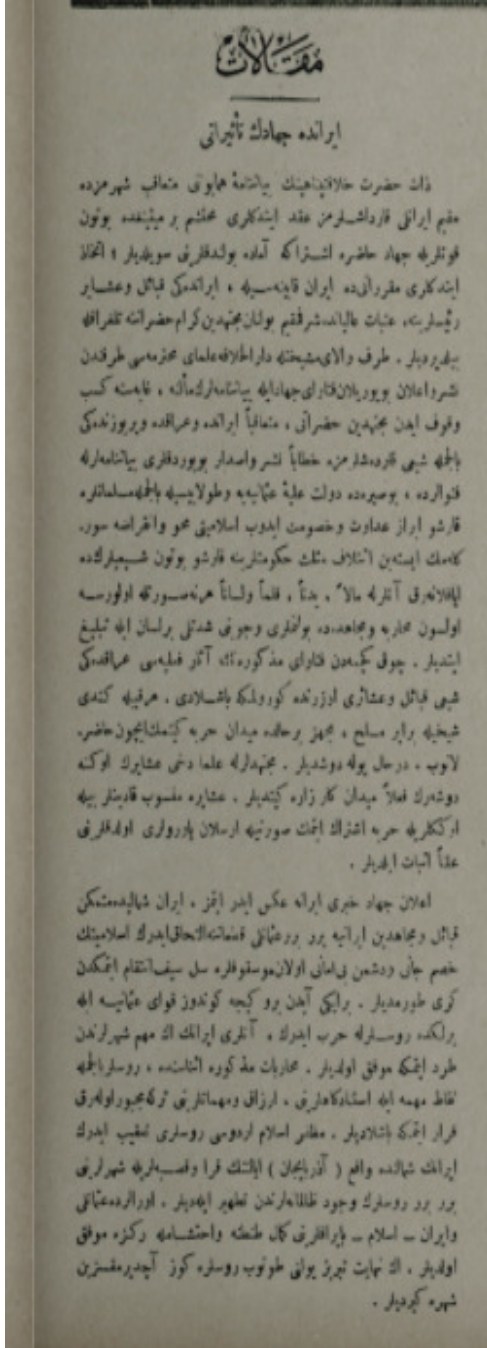 مقالات
ایرانده جهادك تأثیراتی
ذات حضرت خلافتپناهینك بیاننامۀ همایونی متعاقب شهرمزده
مقیم ایرانی قارداشلرمز عقد ایتدكلری محتشم بر میتینغده بوتون
قوتلریله جهاد حاضره اشتراكه آماده بولندقلرینی سویلدیلر ؛ اتخاذ
ایتدكلری مقرراتی ده ایران قابنه سیله ، ایرانده كی قبائل وعشایر
رئیسلرینه، عتبات عالیاتده شرفمقیم بولنان مجتهدین كرام حضراتنه تلغرافله
بیلدیردیلر . طرف والای مشیختله دارالخلافه علمای محترمه سی طرفندن
نشر واعلان بویوریلان فتاوای جهادایله بیاننامه لرك مآلنه ، غایه سنه كسب
وقوف ایدن مجتهدین حضراتی ، متعاقباً ایرانده وعراقده ویریوزنده كی
بالجمله شیعی قارده شلرمزه خطاباً نشر واصدار بویوردقلری بیاننامه لرله
فتوالرده ، بوصیره ده دولت علیۀ عثمانیه یه وطولاییسیله بالجمله مسلمانلره
قارشو ابراز عداوت وخصومت ایدوب اسلامیتی محو وانقراضه سور-
كله مك ایسته ین ائتلاف مثلث حكومتلرینه قارشو بوتون شیعیلرك ده
ایاقلانه رق آنلرله مالاً ، بدناً ، قلماً ولساناً هرنه صورتله اولورسه
اولسون محاربه ومجاهده ده بولنملری وجوبنی شدتلی برلسان ایله تبلیغ
ایتدیلر . چوق كچمه دن فتاوای مذكوره نك آثار فعلیه سی عراقده كی
شیعی قبائل وعشائری اوزرنده كورولمكه باشلادی . هرقبیله كندی
شیخیله برابر مسلح ، مجهز برحالده میدان حربه كیتمك ایچون حاضر-
لانوب ، درحال یوله دوشدیلر . مجتهدلرله علما دخی عشایرك اوكنه
دوشه رك فعلاً میدان كار زاره كیتدیلر . عشایره منسوب قادینلر بیله
ارككلریله حربه اشتراك ایتمك صورتیله ارسلان یاورولری اولدقلرینی
اثبات ایلدیلر .
اعلان جهاد خبری ایرانه عكس ایدر ایتمز ، ایران شمالیده متمكن
قبائل ومجاهدین ایرانیه برر برر عثمانلی قطعاتنه التحاق ایدرك اسلامیتك
خصم جانی ودشمن بی امانی اولان موسقوفلره سل سیف انتقام ایتمكدن
كری طورمدیلر . برایكی آیدن برو كیجه كوندوز قوای عثمانیه ایله
برلكده روسلرله حرب ایدرك ، آنلری ایرانك اك مهم شهرلرندن
طرد ایتمكه موفق اولدیلر . محاربات مذكوره اثناسنده ، روسلر بالجمله
نقاط مهمه ایله استنادكاهلرینی ، ارزاق ومهماتلرینی تركه مجبور اوله رق
فرار ایتمكه باشلادیلر . مظفر اسلام اردوسی روسلری تعقیب ایدرك
ایرانك شمالنده واقع ( آذربایجان ) ایالتنك قرا وقصبه لریله شهرلرینی
برر برر روسلرك وجود ظالمانه لرندن تطهیر ایلدیلر . اورالرده عثمانلی
وایران ــ اسلام ــ بایراقلرینی كمال طنطنه واحتشامله ركزه موفق
اولدیلر . اك نهایت تبریز یولنی طوتوب روسلره كوز آچدیرمقسزین
شهره كیردیلر .